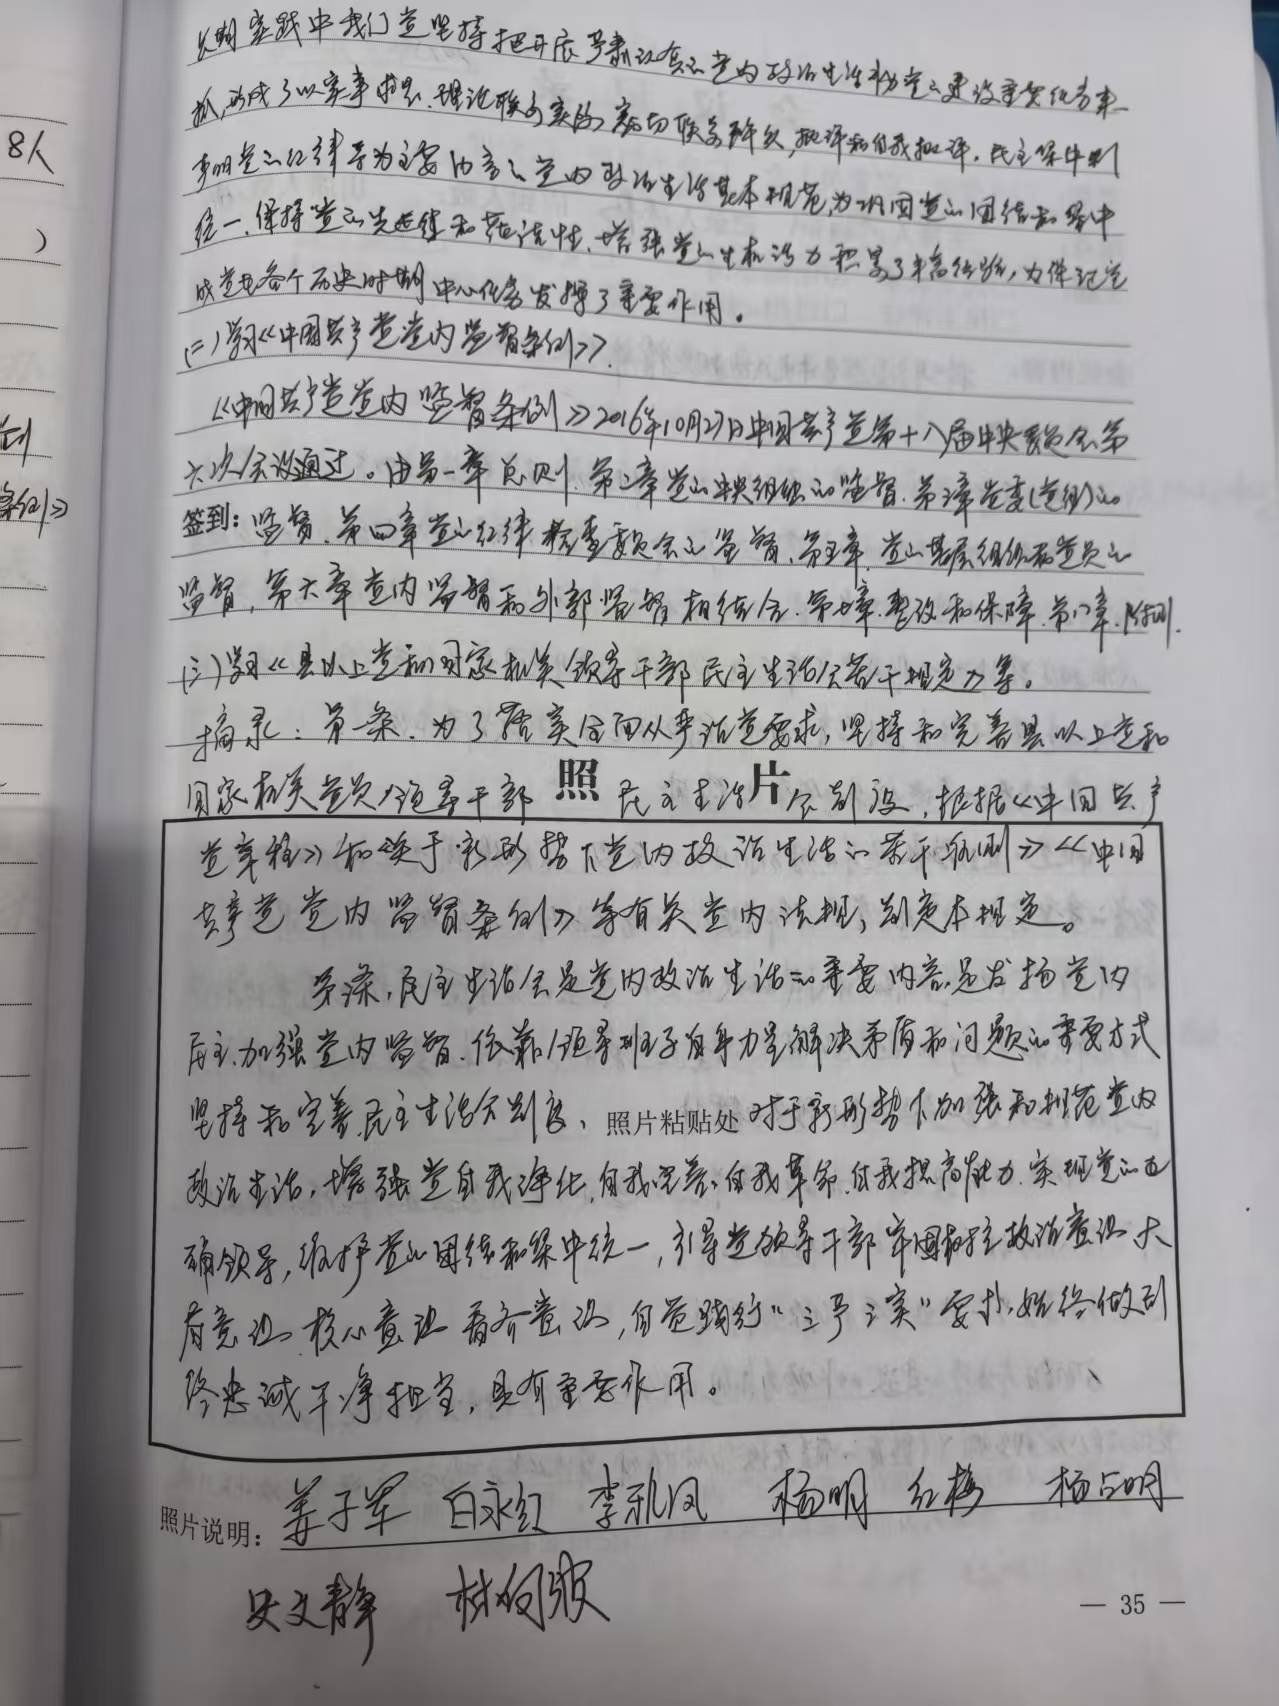 长期实践中我们党坚持把开展严肃认真的党内政治生活作为党的建设重要任务来
抓,形成了以实事求是、理论联系实际、密切联系群众、批评和自我批评、民主集中制
严明党的纪律等为主要内容的党内政治生活基本规范,为巩固党的团结和集中
统一、保持党的先进性和纯洁性、增强党的生机活力积累了丰富经验,为保证完
成党在各个历史时期中心任务发挥了重要作用。
(二)学习《中国共产党党内监督条例》
《中国共产党党内监督条例》2016年10月27日中国共产党第十八届中央委员会第
六次会议通过。由第一章总则、第二章党的中央组织的监督、第三章党委(党组)的
签到:监督、第四章党的纪律检查委员会的监督、第五章、党的基层组织和党员的
监督,第六章党内监督和外部监督相结合、第七章、整改和保障、第八章、附则.
(三)学习《县以上党和国家机关领导干部民主生活会若干规定》等。
摘录:第一条、为了落实全面从严治党要求,坚持和完善县以上党和
国家机关党员领导干部 照 民主生活 片 会制度,根据《中国共产
党章程》和《关于新形势下党内政治生活的若干准则》《中国
共产党党内监督条例》等有关党内法规,制定本规定。
第二条,民主生活会是党内政治生活的重要内容,是发扬党内
民主、加强党内监督、依靠领导班子自身力量解决矛盾和问题的重要方式
坚持和完善民主生活会制度、 照片粘贴处 对于新形势下加强和规范党内
政治生活,增强党自我净化,自我完善、自我革命、自我提高能力、实现党的正
确领导,维护党的团结和集中统一,引导党领导干部牢固树立政治意识 大
局意识 核心意识 看齐意识,自觉践行“三严三实”要求,始终做到
终忠诚干净担当,具有重要作用。
照片说明: 姜子军 白永红 李雅凤 杨明 红梅 杨占明
史文静 林向波
8人
)
条例》
— 35 —